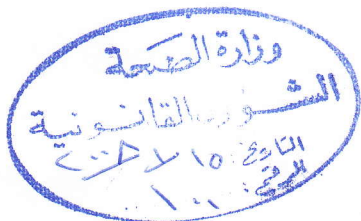 وزارة الصحة
الشؤون القانونية
التاريخ: ١٥
الرقم: